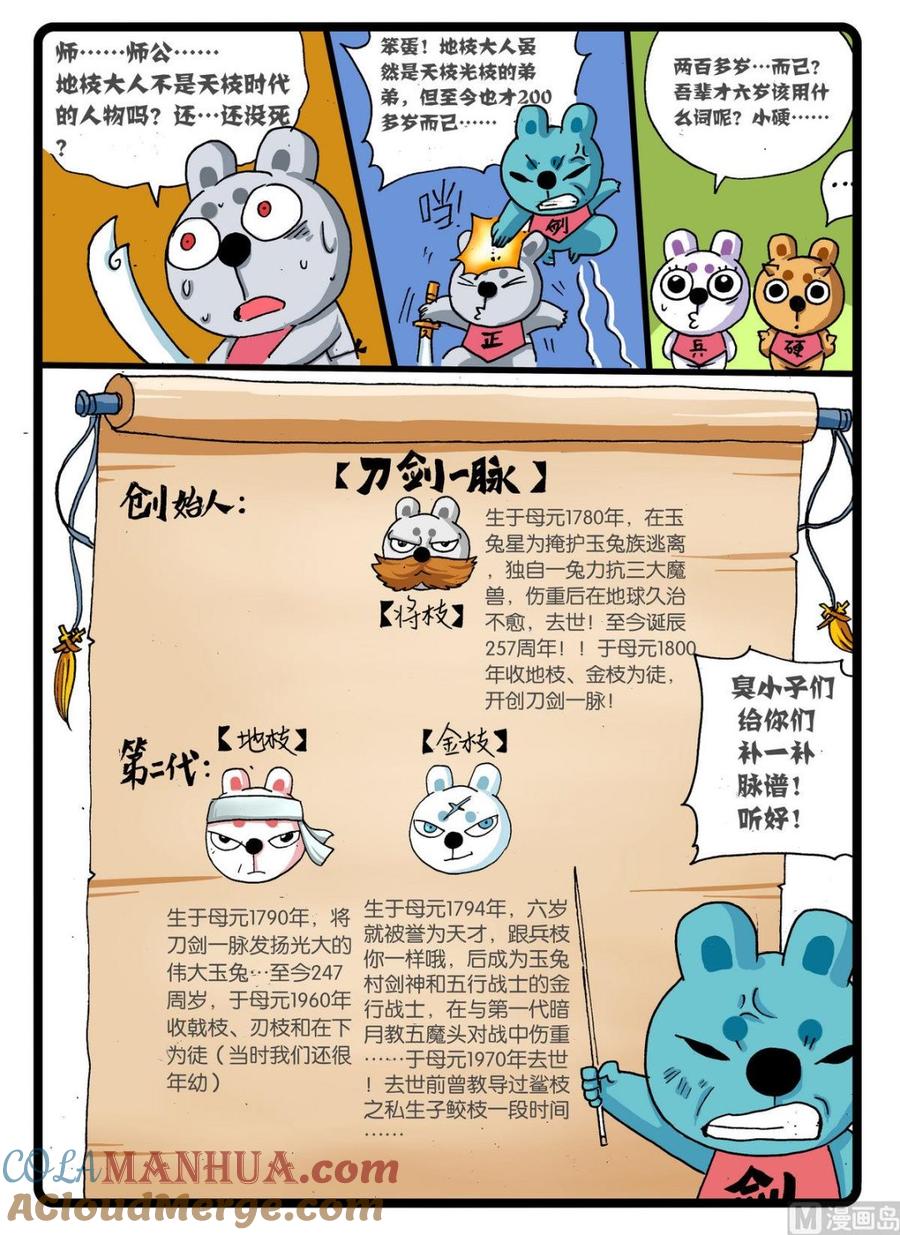 师……师公……
地枝大人不是天枝时代
的人物吗？还…还没死
？
笨蛋！地枝大人虽
然是天枝光枝的弟
弟，但至今也才200
多岁而已……
两百多岁…而已？
吾辈才六岁该用什
么词呢？小硬……
…
咣!
剑
正
兵
硬
【刀剑一脉】
创始人：
生于母元1780年，在玉
兔星为掩护玉兔族逃离
，独自一兔力抗三大魔
兽，伤重后在地球久治
不愈，去世！至今诞辰
257周年！！于母元1800
年收地枝、金枝为徒，
开创刀剑一脉！
【将枝】
臭小子们
给你们
补一补
脉谱！
听好！
第二代：
【地枝】
【金枝】
生于母元1790年，将
刀剑一脉发扬光大的
伟大玉兔…至今247
周岁，于母元1960年
收戟枝、刃枝和在下
为徒（当时我们还很
年幼）
生于母元1794年，六岁
就被誉为天才，跟兵枝
你一样哦，后成为玉兔
村剑神和五行战士的金
行战士，在与第一代暗
月教五魔头对战中伤重
……于母元1970年去世
！去世前曾教导过鲨枝
之私生子鲛枝一段时间
……
剑
COLAMANHUA.com
ACloudMerge.com
M 漫画岛